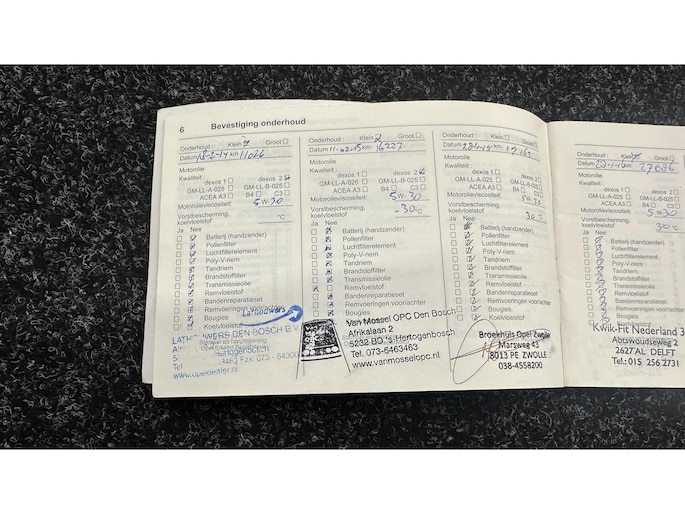 6 Bevestiging onderhoud
Onderhoud: Klein Groot
Datum km 11026
Motorolie
Kwaliteit:
dexos 1 dexos 2
GM-LL-A-025 GM-LL-B-025
ACEA A3 B4 C3
Motorolieviscositeit: 5W-30
Vorstbescherming:
koelvloeistof °C
Ja Nee
Batterij (handzender)
Pollenfilter
Luchtfilterelement
Poly-V-riem
Tandriem
Brandstoffilter
Transmissieolie
Remvloeistof
Bandenreparatieset
Remvoeringen voor/achter
Bougies
Koelvloeistof
LATHOUWERS DEN BOSCH B.V.
's-Hertogenbosch
www.opeldealer.nl
Onderhoud: Klein Groot
Datum 11-02-15 km 16227
Motorolie
Kwaliteit:
dexos 1 dexos 2
GM-LL-A-025 GM-LL-B-025
ACEA A3 B4 C3
Motorolieviscositeit: 5W-30
Vorstbescherming:
koelvloeistof -30°C
Ja Nee
Batterij (handzender)
Pollenfilter
Luchtfilterelement
Poly-V-riem
Tandriem
Brandstoffilter
Transmissieolie
Remvloeistof
Bandenreparatieset
Remvoeringen voor/achter
Bougies
Van Mossel OPC Den Bosch
Afrikalaan 2
5232 BD 's-Hertogenbosch
Tel. 073-6463463
www.vanmosselopc.nl
Onderhoud: Klein Groot
Datum km
Motorolie
Kwaliteit:
dexos 1 dexos 2
GM-LL-A-025 GM-LL-B-025
ACEA A3 B4 C3
Motorolieviscositeit: 5W-30
Vorstbescherming:
koelvloeistof 30°C
Ja Nee
Batterij (handzender)
Pollenfilter
Luchtfilterelement
Poly-V-riem
Tandriem
Brandstoffilter
Transmissieolie
Remvloeistof
Bandenreparatieset
Remvoeringen voor/achter
Bougies
Koelvloeistof
Broekhuis Opel Zwolle
Marsweg 43
8013 PE ZWOLLE
038-4558200
Onderhoud: Klein Groot
Datum km 27086
Motorolie
Kwaliteit:
dexos 1 dexos 2
GM-LL-A-025 GM-LL-B-025
ACEA A3 B4 C3
Motorolieviscositeit: 5W30
Vorstbescherming:
koelvloeistof 30°C
Ja Nee
Batterij (handzender)
Pollenfilter
Luchtfilterelement
Poly-V-riem
Tandriem
Brandstoffilter
Transmissieolie
Remvloeistof
Bandenreparatieset
Remvoeringen voor/achter
Bougies
Kwik-Fit Nederland
Abtswoudseweg 2
2627 AL DELFT
Tel.: 015 256 2731